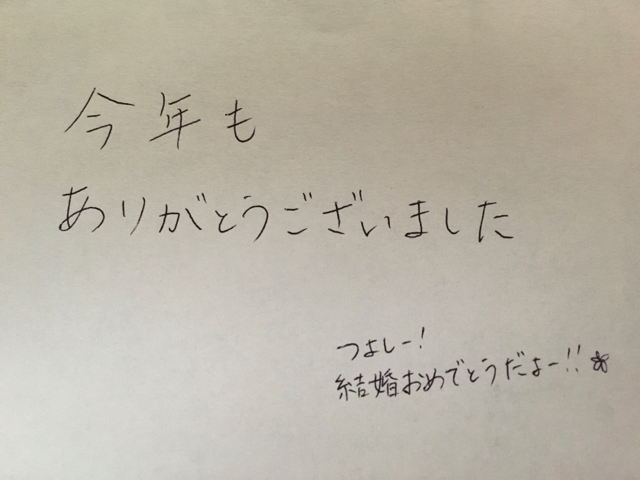 今年も
ありがとうございました
つよしー!
結婚おめでとうだよー!!